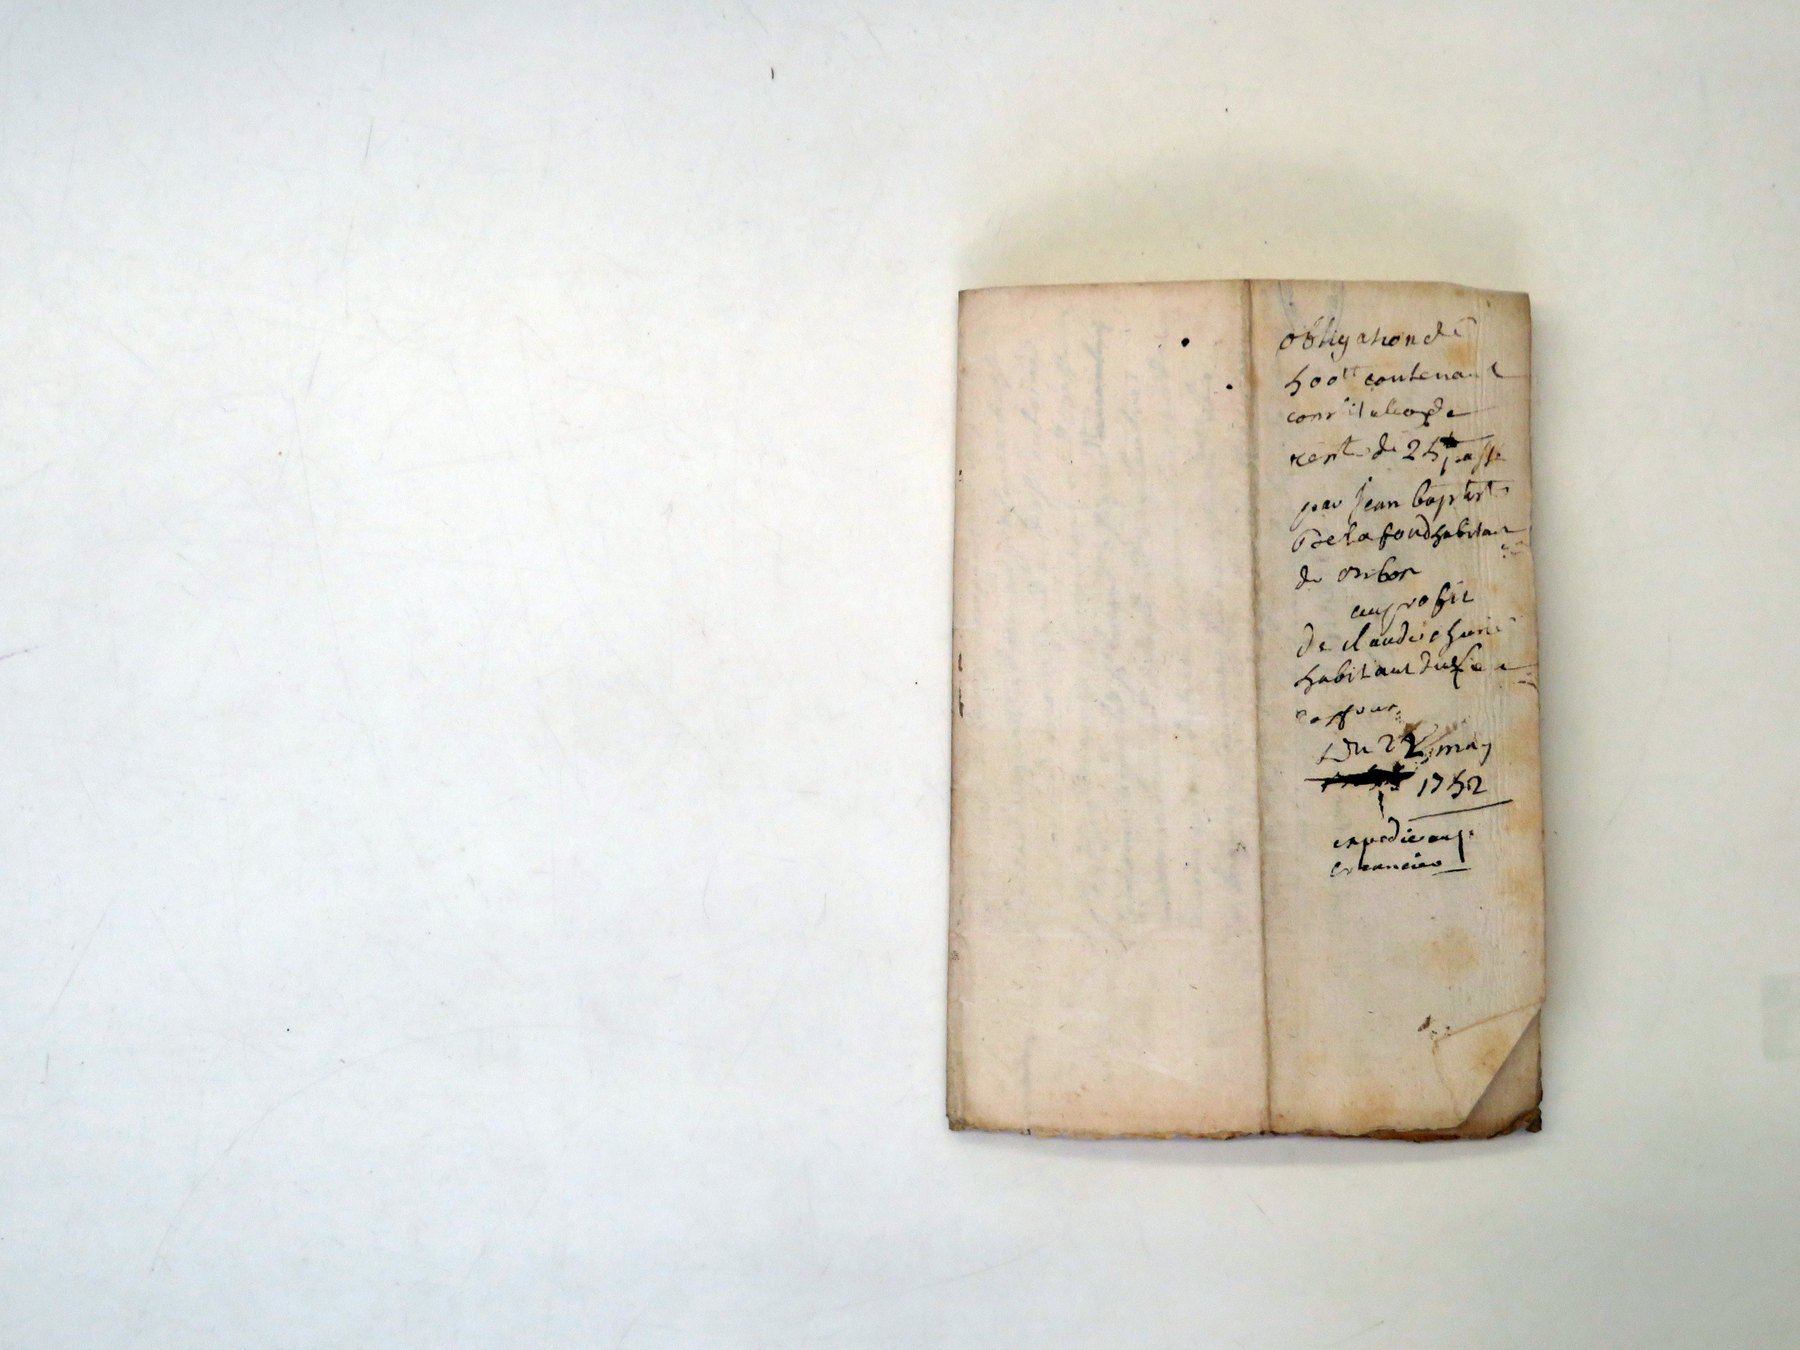 obligation de
500tt contenant
constitution de
rente de 25tt passe
par jean baptiste
De la fond habitant
de orbon
au profit
De claude
habitant du
Du 22 may
1752
expedie au
creancier